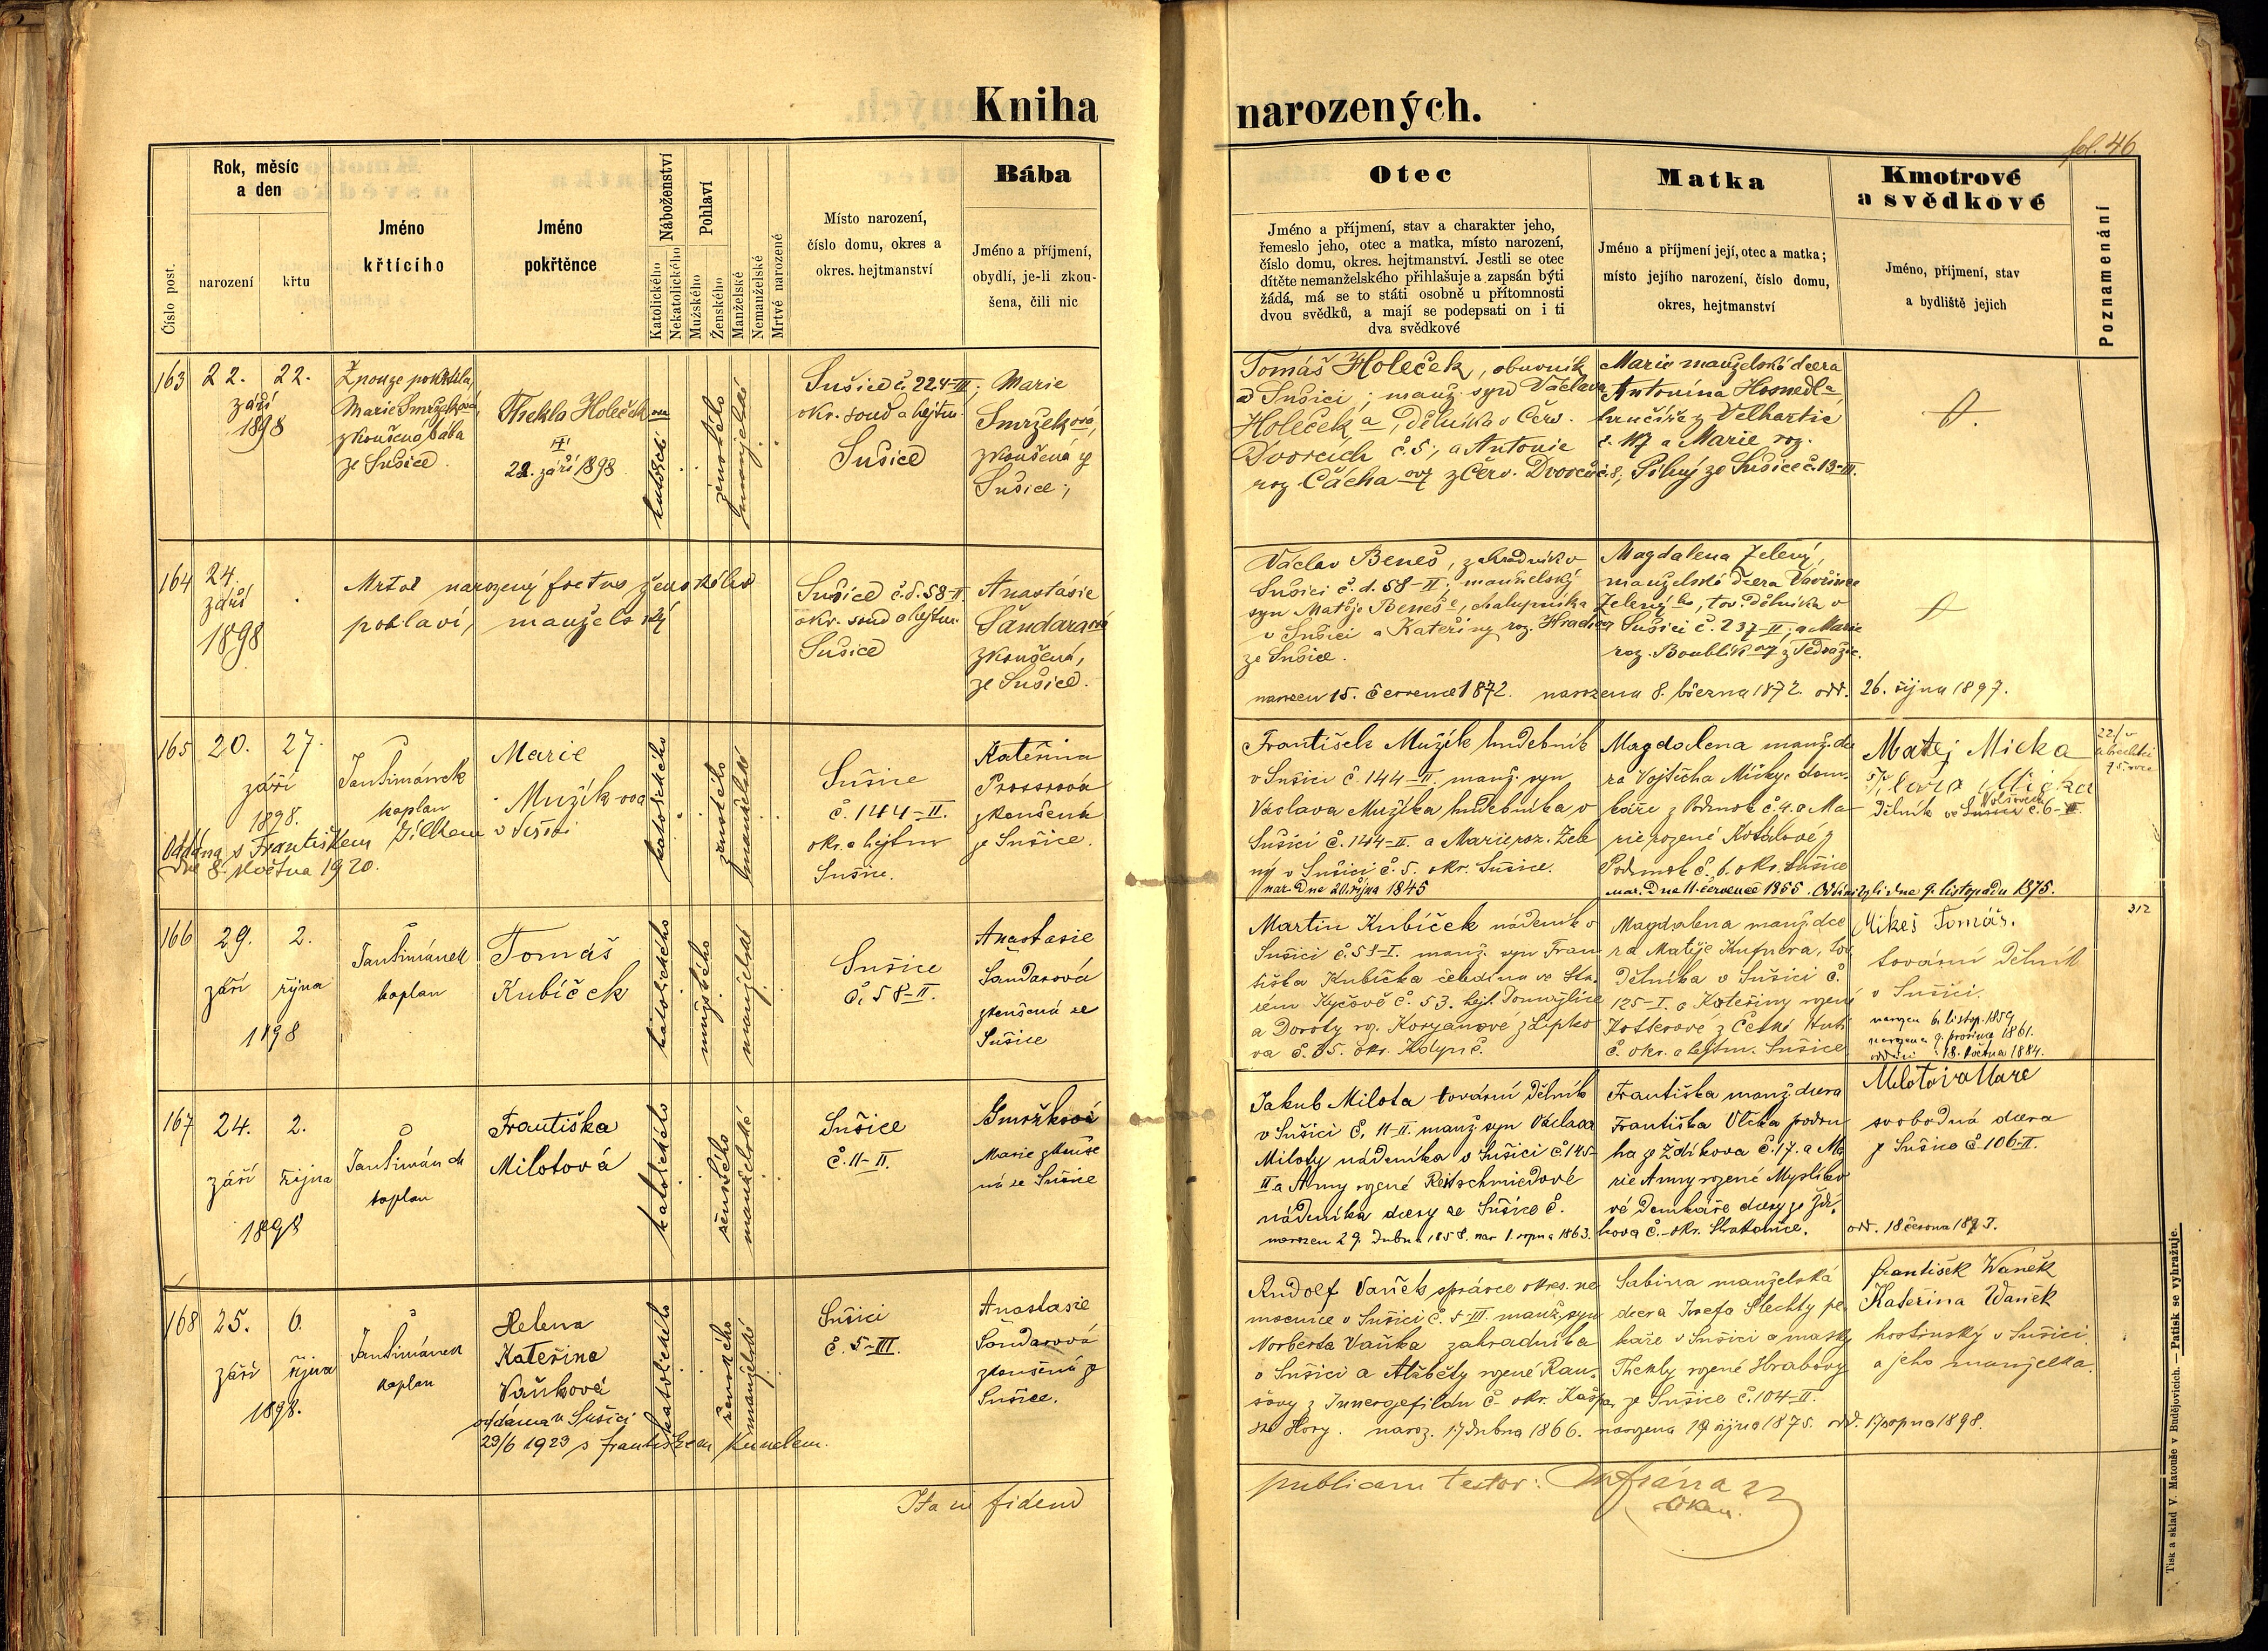 Kniha narozených.
fol. 46
Číslo post.
Rok, měsíc
a den
narození
křtu
Jméno
křtícího
Jméno
pokřtěnce
Náboženství
Katolického
Nekatolického
Pohlaví
Mužského
Ženského
Manželské
Nemanželské
Mrtvé narozené
Místo narození,
číslo domu, okres a
okres. hejtmanství
Bába
Jméno a příjmení,
obydlí, je-li zkou-
šena, čili nic
Otec
Jméno a příjmení, stav a charakter jeho,
řemeslo jeho, otec a matka, místo narození,
číslo domu, okres. hejtmanství. Jestli se otec
dítěte nemanželského přihlašuje a zapsán býti
žádá, má se to státi osobně u přítomnosti
dvou svědků, a mají se podepsati on i ti
dva svědkové
Matka
Jméno a příjmení její, otec a matka;
místo jejího narození, číslo domu,
okres, hejtmanství
Kmotrové
a svědkové
Jméno, příjmení, stav
a bydliště jejich
Poznamenání
163
22.
září
1898
22.
Z nouze pokřtila
Marie Smržková,
zkoušená bába
ze Sušice.
Thekla Holečkova
22. září 1898
katolické
ženského
manželské
Sušice č. 224-III;
okr. soud a hejtm.
Sušice
Marie
Smržková,
zkoušená z
Sušice;
Tomáš Holeček, obuvník
v Sušici; manž. syn Václava
Holečka, dělníka v Červ.
Dvorcích č. 5, a Antonie
roz. Čáchovy z Červ. Dvorců č. 8;
Marie manželská dcera
Antonína Hosnedla,
z Velhartic
č. 117 a Marie roz.
Silný ze Sušice č. 13-III.
164
24.
září
1898
Mrtvě narozený foetus ženského
pohlaví, manželský
Sušice č. d. 58-II.
okr. soud a hejtm.
Sušice
Anastásie
Šandarová
zkoušená,
ze Sušice.
Václav Beneš, zahradník v
Sušici č. d. 58-II; manželský
syn Matěje Beneše, chalupníka
v Sušici a Kateřiny roz.
ze Sušice.
narozen 15. července 1872.
Magdalena Zelený,
manželská dcera Vavřince
Zelenýho, tov. dělníka v
Sušici č. 237-II; a Marie
roz. Boublíkovy z
narozena 8. března 1872. odd. 26. října 1897.
165
20.
září
1898.
27.
Jan Šimánek
kaplan
Marie
Mužíkova
Oddána s Františkem Jílkem v
dne 8. května 1920.
katolického
ženského
manželské
Sušice
č. 144-II.
okr. a hejtm
Sušice.
Kateřina
Prossrová
zkoušená
ze Sušice.
František Mužík hudebník
v Sušici č 144-II. manž. syn
Václava Mužíka hudebníka v
Sušici č. 144-II. a Marie roz. Zele
ný v Sušici č. 5. okr. Sušice.
nar. dne 20. října 1845
Magdalena manž. dce
ra Vojtěcha Mičky, dom
káře z Podmok č. 4. a Ma
rie rozené Košálové z
Podmok č. 6. okr. Sušice
nar. dne 11. července 1855. Oddáni byli dne 9. listopadu 1875.
Matěj Micka
Micka
dělník ve Sušici č. 6-II.
166
29.
září
1898
2.
října
Jan Šimánek
kaplan
Tomáš
Kubíček
katolického
mužského
manželské
Sušice
č. 58-II.
Anastasie
Sandarová
zkoušená ze
Sušice
Martin Kubíček nádeník v
Sušici č. 51-I. manž. syn Fran
tiška Kubíčka čeledína ve Sta
rém Kyčově č. 53. hejt. Domažlice
a Doroty roz. Koryanové z Lipko
va č. 35. okr. Kdyně.
Magdalena manž. dce
ra Matěje Kufnera, tov
dělníka v Sušici č.
125-I. a Kateřiny rozené
č. okr. a hejtm. Sušice
Mikeš Tomáš.
tovární dělník
v Sušici.
narozen 6. listop. 1859
narozena 9. prosince 1861.
oddáni 18. května 1884.
312
167
24.
září
1898
2.
října
Jan Šimánek
kaplan
Františka
Milotová
katolického
ženského
manželské
Sušice
č. 11-II.
Smržková
Marie zkouše
ná ze Sušice
Jakub Milota tovární dělník
v Sušici č. 11-II. manž. syn Václava
Miloty nádeníka v Sušici č. 145-
II a Anny rozené Reitschmiedové
nádeníka dcery ze Sušice č.
narozen 29. dubna 1858. nar 1. srpna 1863.
Františka manž. dcera
Františka Vlčka podru
ha ze Ždíkova č. 17. a Ma
rie Anny rozené Myslíko
vé domkáře dcery ze Ždí-
kova č. - okr. Strakonice.
Milotova Marie
svobodná dcera
z Sušice č. 106-II.
168
25.
září
1898.
6.
října
Jan Šimánek
kaplan
Helena
Kateřina
Vaňková
oddána v Sušici
23/6 1923 s Františkem Kunclem.
katolického
ženského
manželské
Sušici
č. 5-III.
Anastasie
Sandarová
zkoušená z
Sušice.
Rudolf Vaněk správce okres. ne
mocnice v Sušici č. 5-III manž. syn
Norberta Vaňka zahradníka
v Sušici a Alžběty rozené Rau-
šovy z Innergefildu č. okr. Kašpe
ské Hory. naroz. 17 dubna 1866.
Sabina manželská
dcera Josefa Šlechty pe
kaře v Sušici a matky
Thekly rozené Hrabovy
ze Sušice č. 104-II.
narozena 19 října 1875. odd. 17 srpna 1898.
František Waněk
Kateřina Waněk
hostinský v Sušici
a jeho manželka.
Ita in fidem
publicam testor:
děkan.
Tisk a sklad V. Matouše v Budějovicích. — Patisk se vyhražuje.